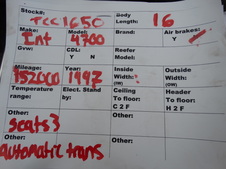 Stock#: TCC1650 Body Length: 16
Make: Int Model: 4700 Brand: Air brakes? Y
Gvw: CDL: Y N Reefer Model:
Mileage: 152000 Year: 1997 Inside Width: (IW) Outside Width: (OW)
Temperature range: Elect. Stand by: Ceiling To floor: C 2 F Header To Floor: H 2 F
Other: Seats 3 Other: Other:
Other: automatic trans